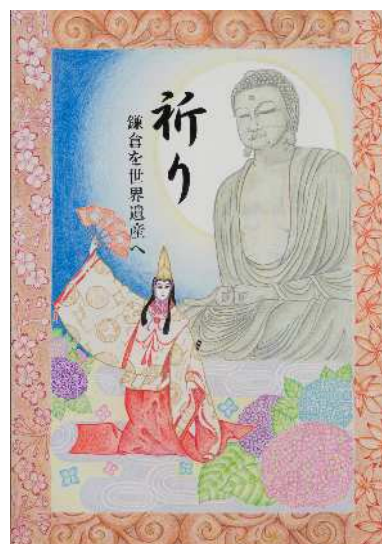 祈り
鎌倉を世界遺産へ